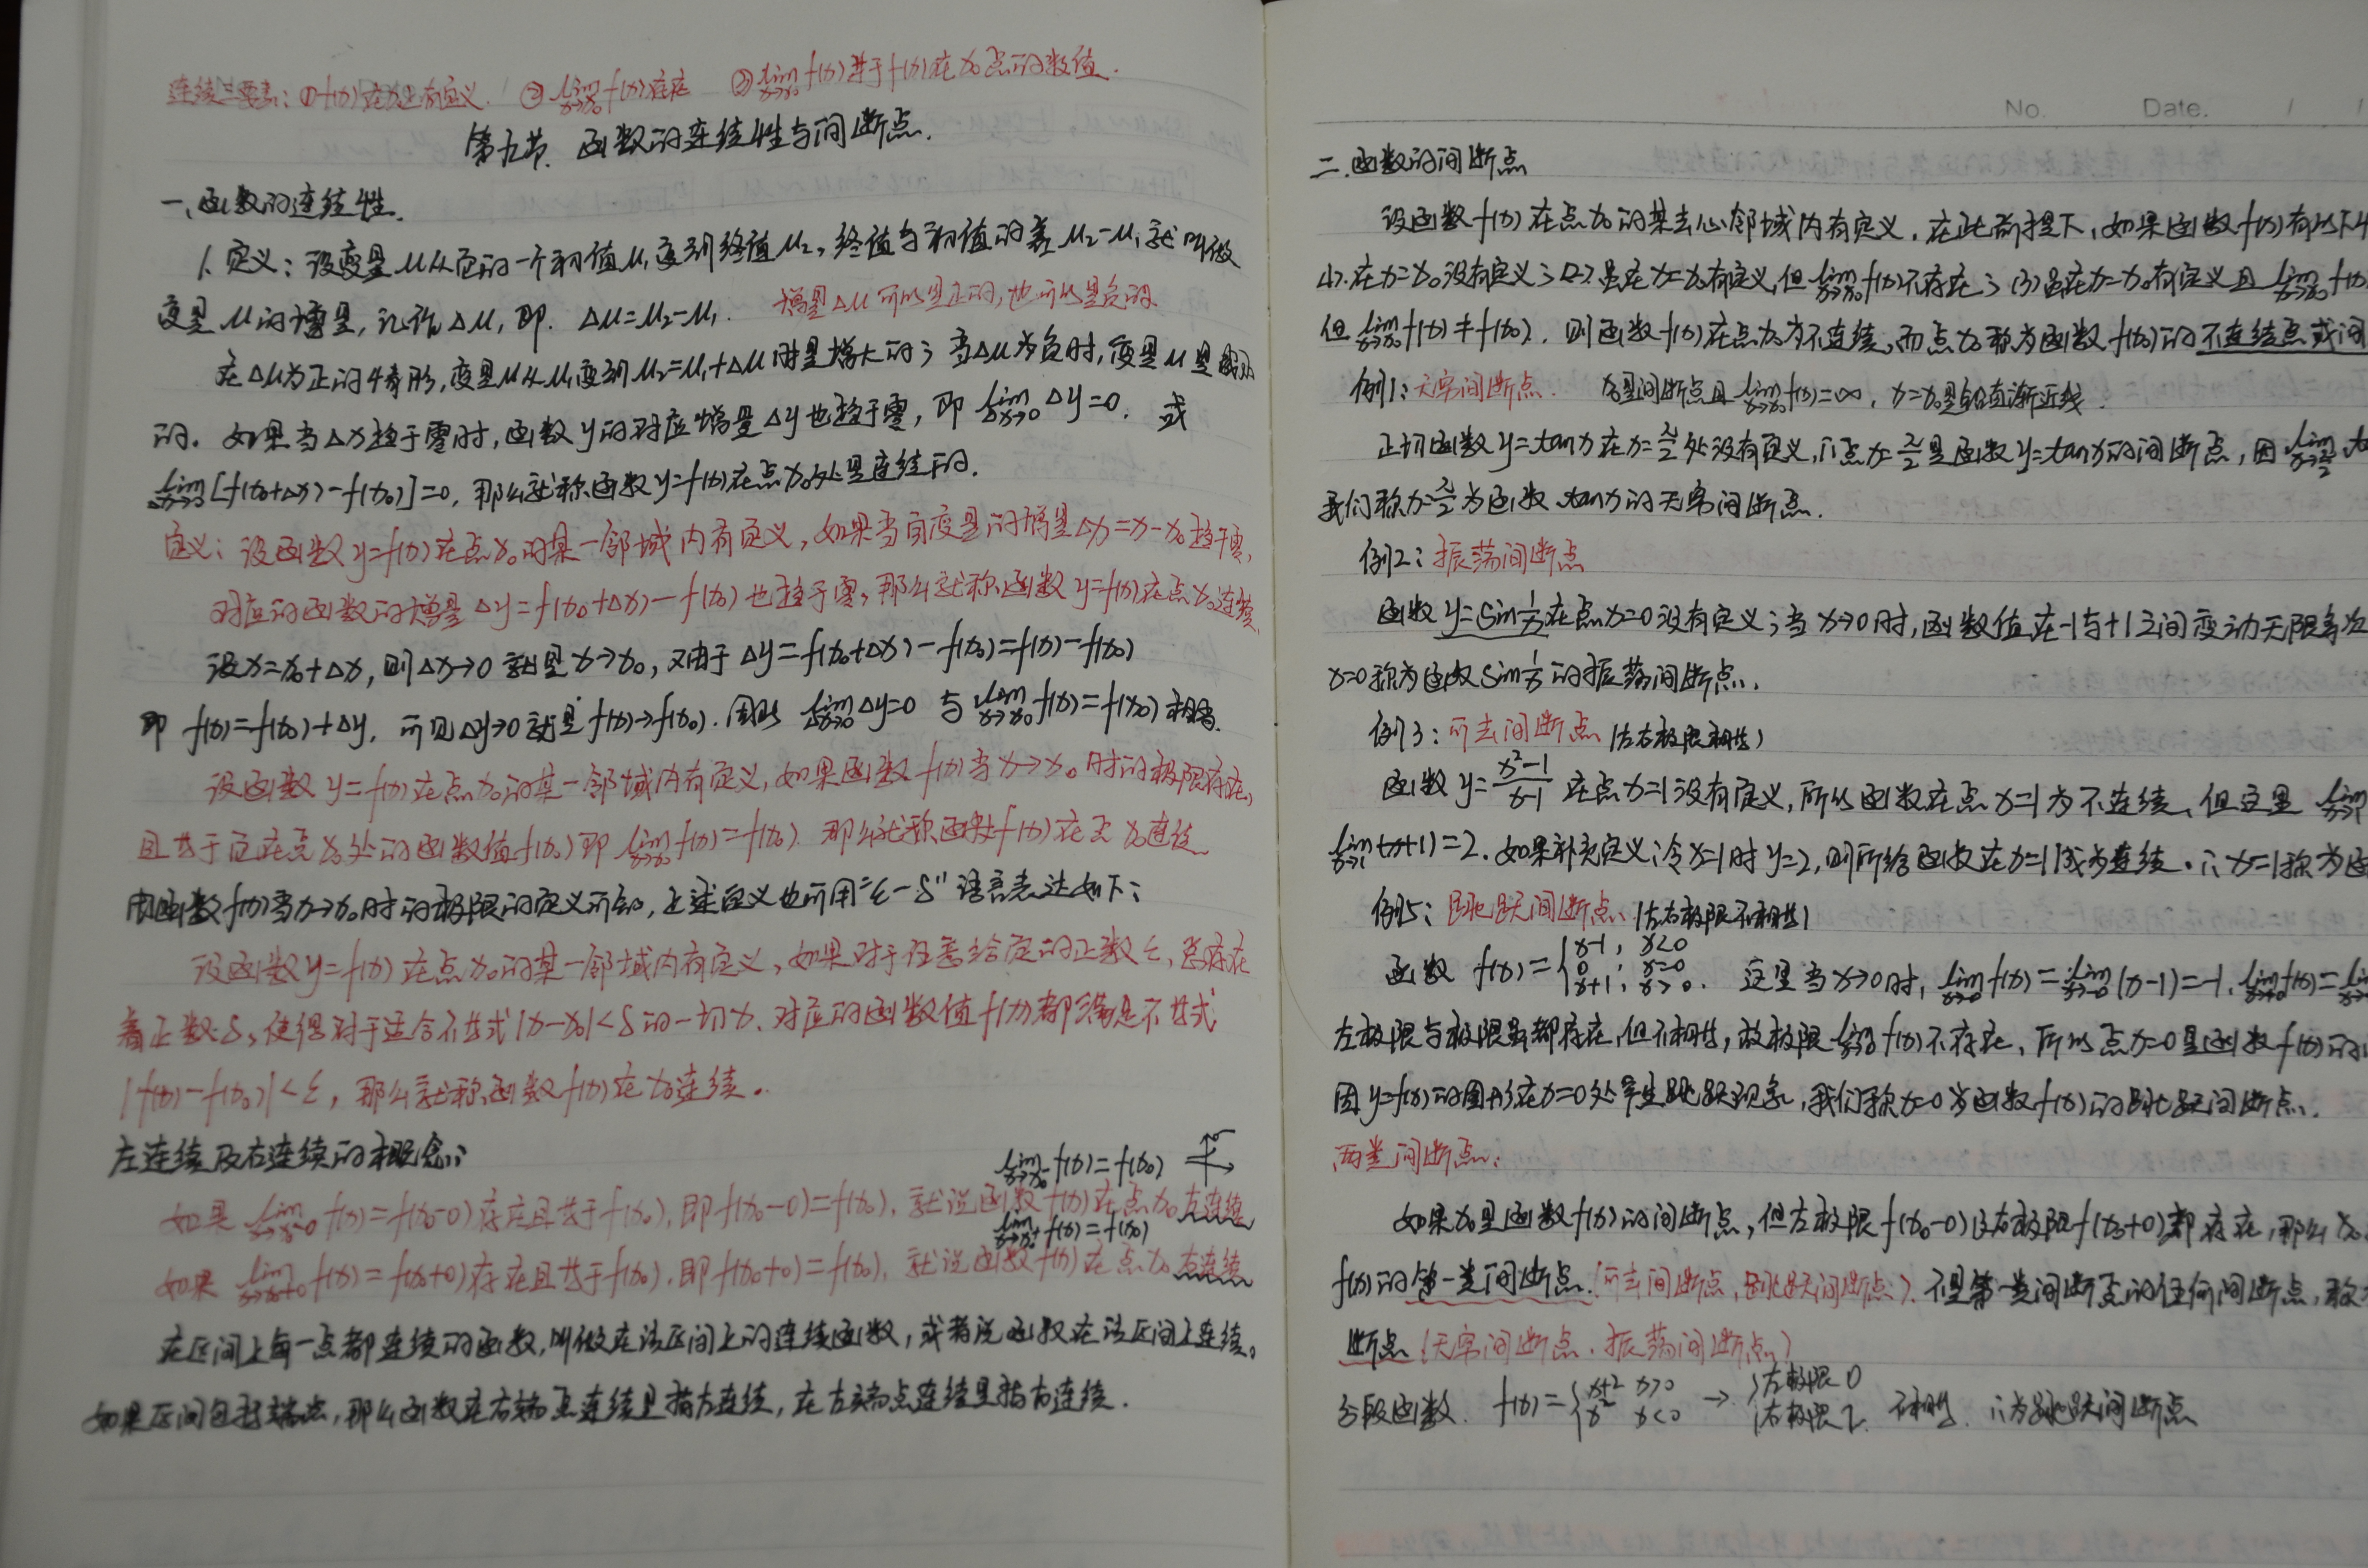 连续三要素：①f(x)在x₀处有定义. ②lim(x→x₀) f(x)存在 ③lim(x→x₀) f(x)等于f(x)在x₀点的数值.
第九节. 函数的连续性与间断点.
一、函数的连续性.
1. 定义：设变量u从它的一个初值u₁变到终值u₂, 终值与初值的差u₂-u₁就叫做
变量u的增量, 记作Δu, 即. Δu=u₂-u₁. 增量Δu可以是正的, 也可以是负的.
在Δu为正的情形, 变量u从u₁变到u₂=u₁+Δu时是增大的; 当Δu为负时, 变量u是减小
的. 如果当Δx趋于零时, 函数y的对应增量Δy也趋于零, 即 lim(Δx→0) Δy=0. 或
lim(Δx→0)[f(x₀+Δx)-f(x₀)]=0, 那么就称函数y=f(x)在点x₀处是连续的.
定义：设函数y=f(x)在点x₀的某一邻域内有定义, 如果当自变量的增量Δx=x-x₀趋于零,
对应的函数的增量Δy=f(x₀+Δx)-f(x₀)也趋于零, 那么就称函数y=f(x)在点x₀连续.
设x=x₀+Δx, 则Δx→0就是x→x₀, 又由于Δy=f(x₀+Δx)-f(x₀)=f(x)-f(x₀)
即 f(x)=f(x₀)+Δy, 可见Δy→0就是f(x)→f(x₀). 因此 lim(Δx→0) Δy=0 与 lim(x→x₀) f(x)=f(x₀)相当.
设函数y=f(x)在点x₀的某一邻域内有定义, 如果函数f(x)当x→x₀时的极限存在,
且等于它在点x₀处的函数值f(x₀)即 lim(x→x₀) f(x)=f(x₀). 那么就称函数f(x)在点x₀连续.
由函数f(x)当x→x₀时的极限的定义可知, 上述定义也可用"ε-δ"语言表达如下:
设函数y=f(x)在点x₀的某一邻域内有定义, 如果对于任意给定的正数ε, 总存在
着正数δ, 使得对于适合不等式|x-x₀|<δ的一切x, 对应的函数值f(x)都满足不等式
|f(x)-f(x₀)|<ε, 那么就称函数f(x)在x₀连续.
左连续及右连续的概念:
lim(x→x₀⁻) f(x)=f(x₀)
如果 lim(x→x₀-0) f(x)=f(x₀-0)存在且等于f(x₀), 即f(x₀-0)=f(x₀), 就说函数f(x)在点x₀左连续
lim(x→x₀⁺) f(x)=f(x₀)
如果 lim(x→x₀+0) f(x)=f(x₀+0)存在且等于f(x₀), 即f(x₀+0)=f(x₀), 就说函数f(x)在点x₀右连续
在区间上每一点都连续的函数, 叫做在该区间上的连续函数, 或者说函数在该区间上连续.
如果区间包括端点, 那么函数在右端点连续是指左连续, 在左端点连续是指右连续.
No. Date. / /
二. 函数的间断点
设函数f(x)在点x₀的某去心邻域内有定义, 在此前提下, 如果函数f(x)有以下
(1). 在x=x₀没有定义; (2) 虽在x=x₀有定义, 但 lim(x→x₀) f(x)不存在; (3) 虽在x=x₀有定义且 lim(x→x₀) f(x)
但 lim(x→x₀) f(x)≠f(x₀). 则函数f(x)在点x₀为不连续, 而点x₀称为函数f(x)的不连续点或间
例1: 无穷间断点. x₀是间断点且 lim(x→x₀) f(x)=∞, x=x₀是铅直渐近线.
正切函数y=tanx在x=π/2处没有定义, ∴点x=π/2是函数y=tanx的间断点, 因 lim(x→π/2)
我们称x=π/2为函数tanx的无穷间断点.
例2: 振荡间断点
函数y=sin 1/x在点x=0没有定义; 当x→0时, 函数值在-1与+1之间变动无限多次
x=0称为函数sin 1/x的振荡间断点.
例3: 可去间断点 (左右极限相等)
函数y=(x²-1)/(x-1)在点x=1没有定义, 所以函数在点x=1为不连续, 但这里 lim(x→1)
lim(x→1)(x+1)=2. 如果补充定义: 令x=1时y=2, 则所给函数在x=1成为连续. ∴x=1称为函
例5: 跳跃间断点. (左右极限不相等)
函数 f(x)={x-1, x<0; 0, x=0; x+1, x>0. 这里当x→0时, lim(x→-0) f(x)=lim(x→-0)(x-1)=-1. lim(x→+0) f(x)=lim
左极限与极限虽都存在, 但不相等, 故极限 lim(x→0) f(x)不存在, 所以点x=0是函数f(x)的
因y=f(x)的图形在x=0处产生跳跃现象, 我们称x=0为函数f(x)的跳跃间断点.
两类间断点:
如果x₀是函数f(x)的间断点, 但左极限f(x₀-0)及右极限f(x₀+0)都存在, 那么x₀
f(x)的第一类间断点.(可去间断点, 跳跃间断点). 不是第一类间断点的任何间断点, 称
断点 (无穷间断点、振荡间断点)
分段函数. f(x)={x+2 x>0; x² x<0 → {左极限0; 右极限2. 不相等. ∴为跳跃间断点